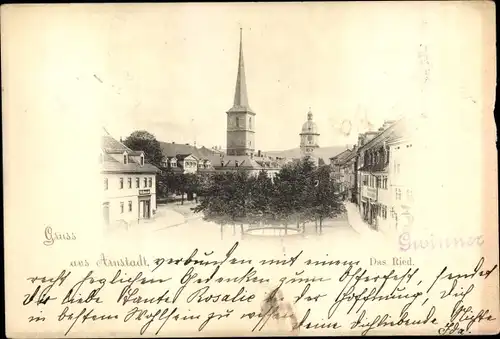 Gruss
aus Arnstadt.
Das Ried.
Gwinner
verbunden mit
recht herzlichen Gedanken zum Osterfeste, sendet
Dir liebe Tante Rosalie der Hoffnung Dich
in bestem Wohlsein zu wissen Deine Dich liebende Nichte
Ida.